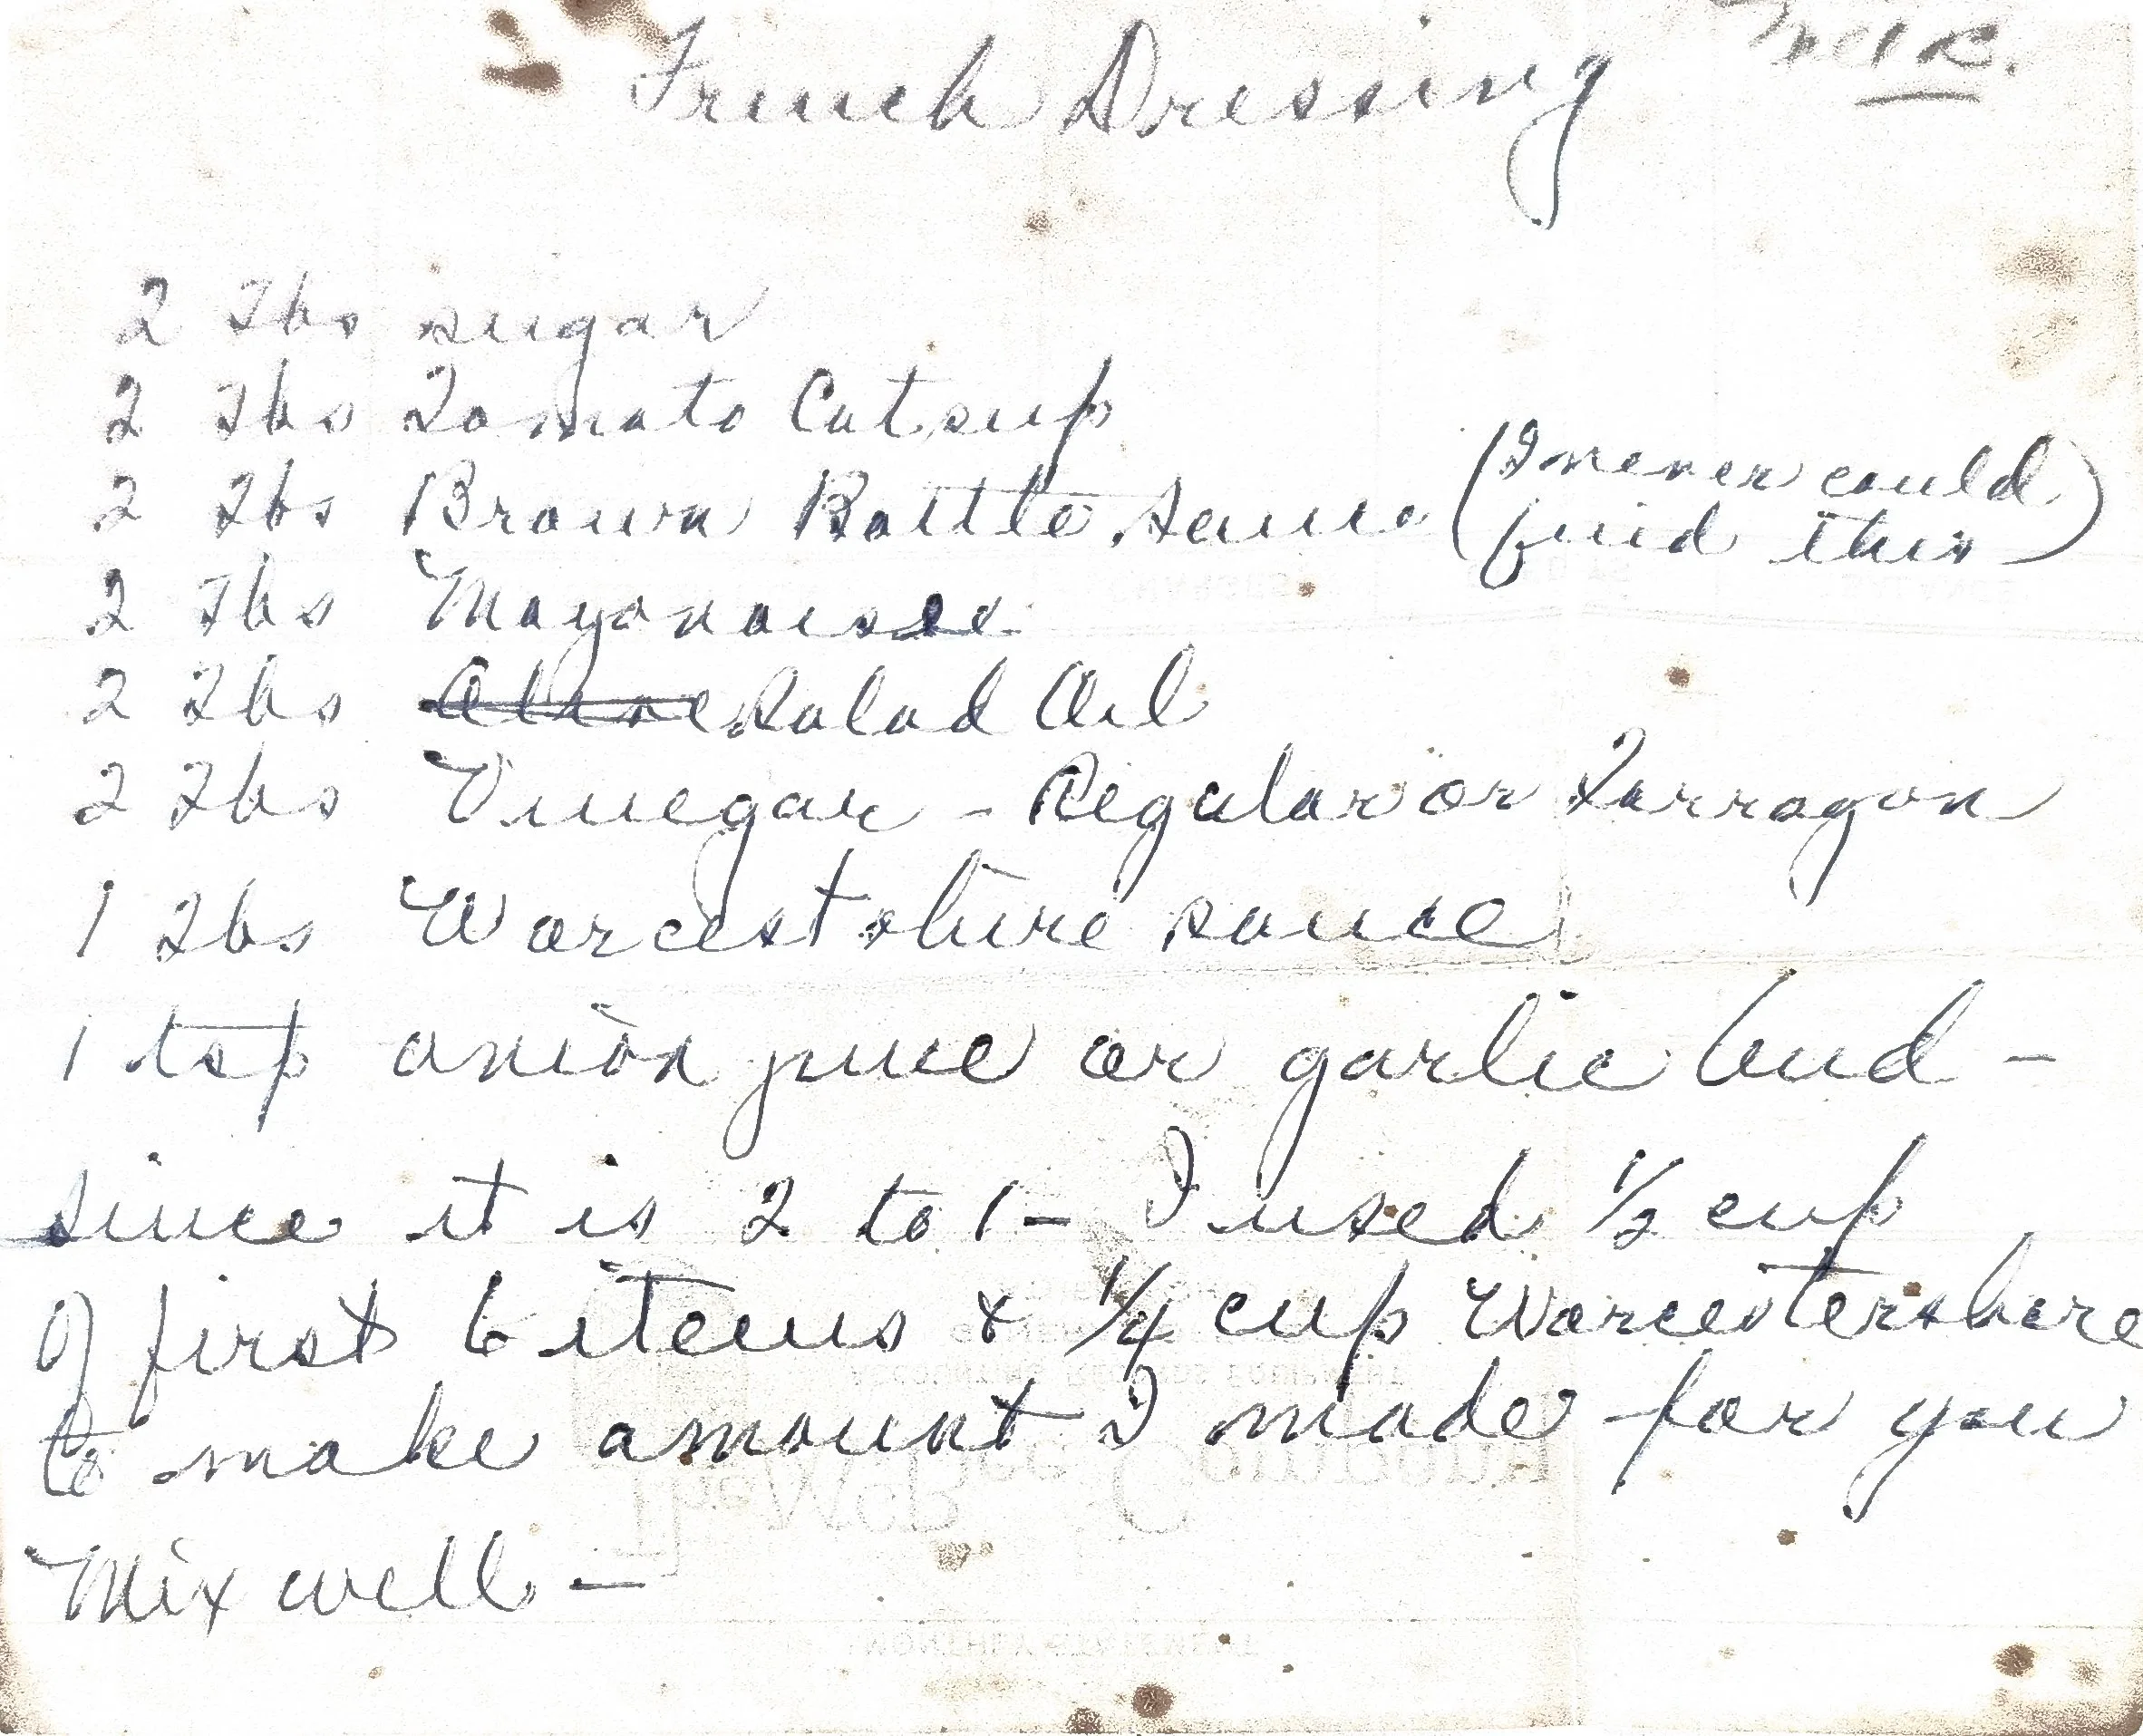 French Dressing
2 Tbs sugar
2 Tbs Tomato Catsup
2 Tbs Brown Bottle Sauce (I never could
find this)
2 Tbs Mayonaisse
2 Tbs Olive Salad Oil
2 Tbs Vinegar - Regular or Tarragon
1 Tbs Worcestshire sauce
1 tsp onion juice or garlic bud -
since it is 2 to 1 - I used 1/2 cup
of first 6 items & 1/4 cup Worcestershire
to make amount I made for you
Mix well -
The McBee Company
MONTHLY STATEMENT